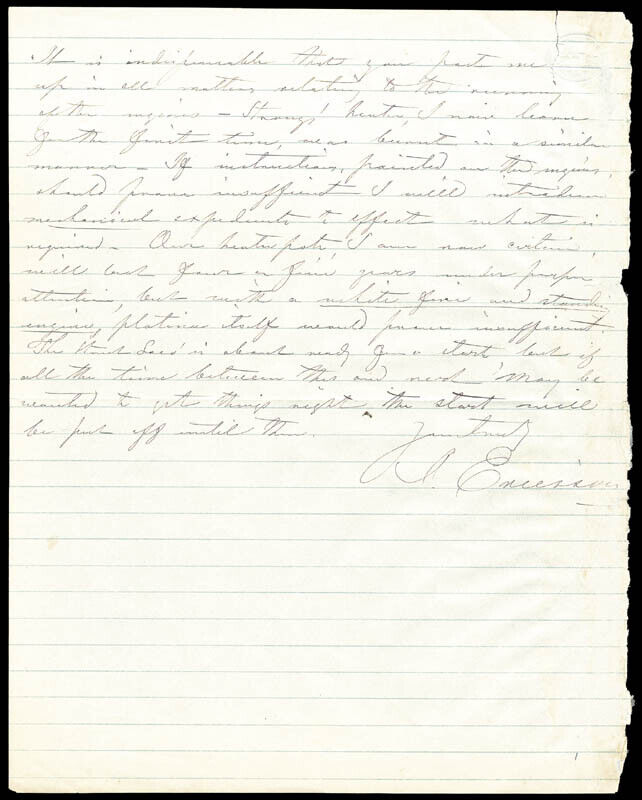 It is indispensable that you post me
up in all matters relating to the running
of the engines – Strong's heater, I now learn
for the first time, was burnt in a similar
manner – If instructions, painted on the engine,
should prove insufficient I will introduce
mechanical expedients to effect what is
required – Our heater pots, I am now certain,
will last four or five years under proper
attention, but with a white fire and standing
engine, platina itself would prove insufficient.
The is about ready for a start, but if
all the time between this and next May be
wanted to get things right the start will
be put off until then.
Yours truly
J. Ericsson